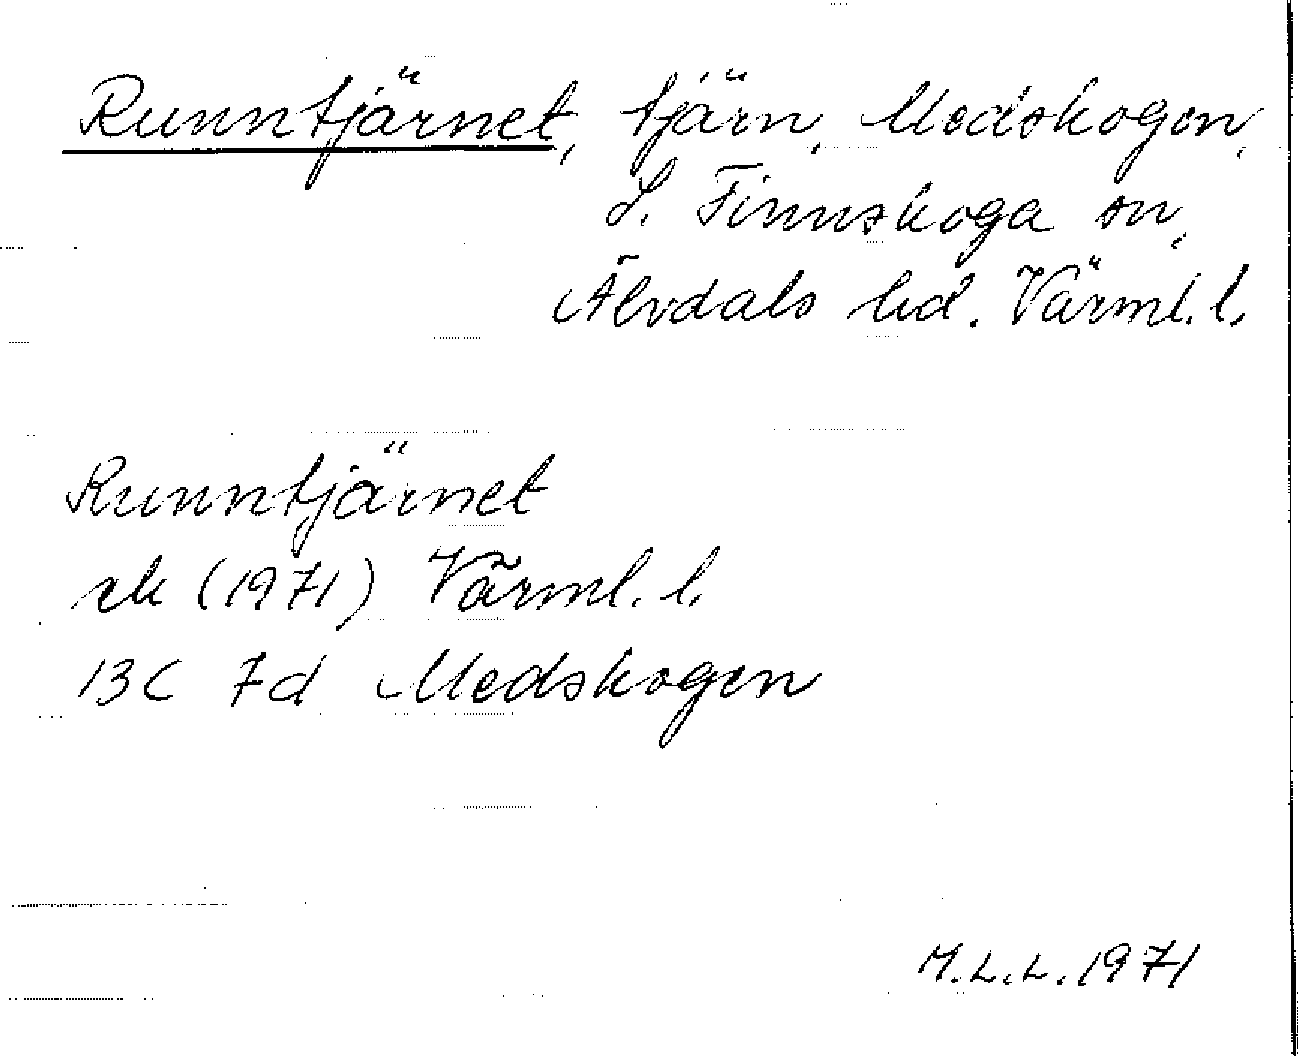 Runntjärnet, tjärn, Medskogen,
S. Finnskoga sn,
Älvdals hd. Värml. l.
Runntjärnet
ek (1971) Värml. l.
13C 7d Medskogen
M.L.L. 1971